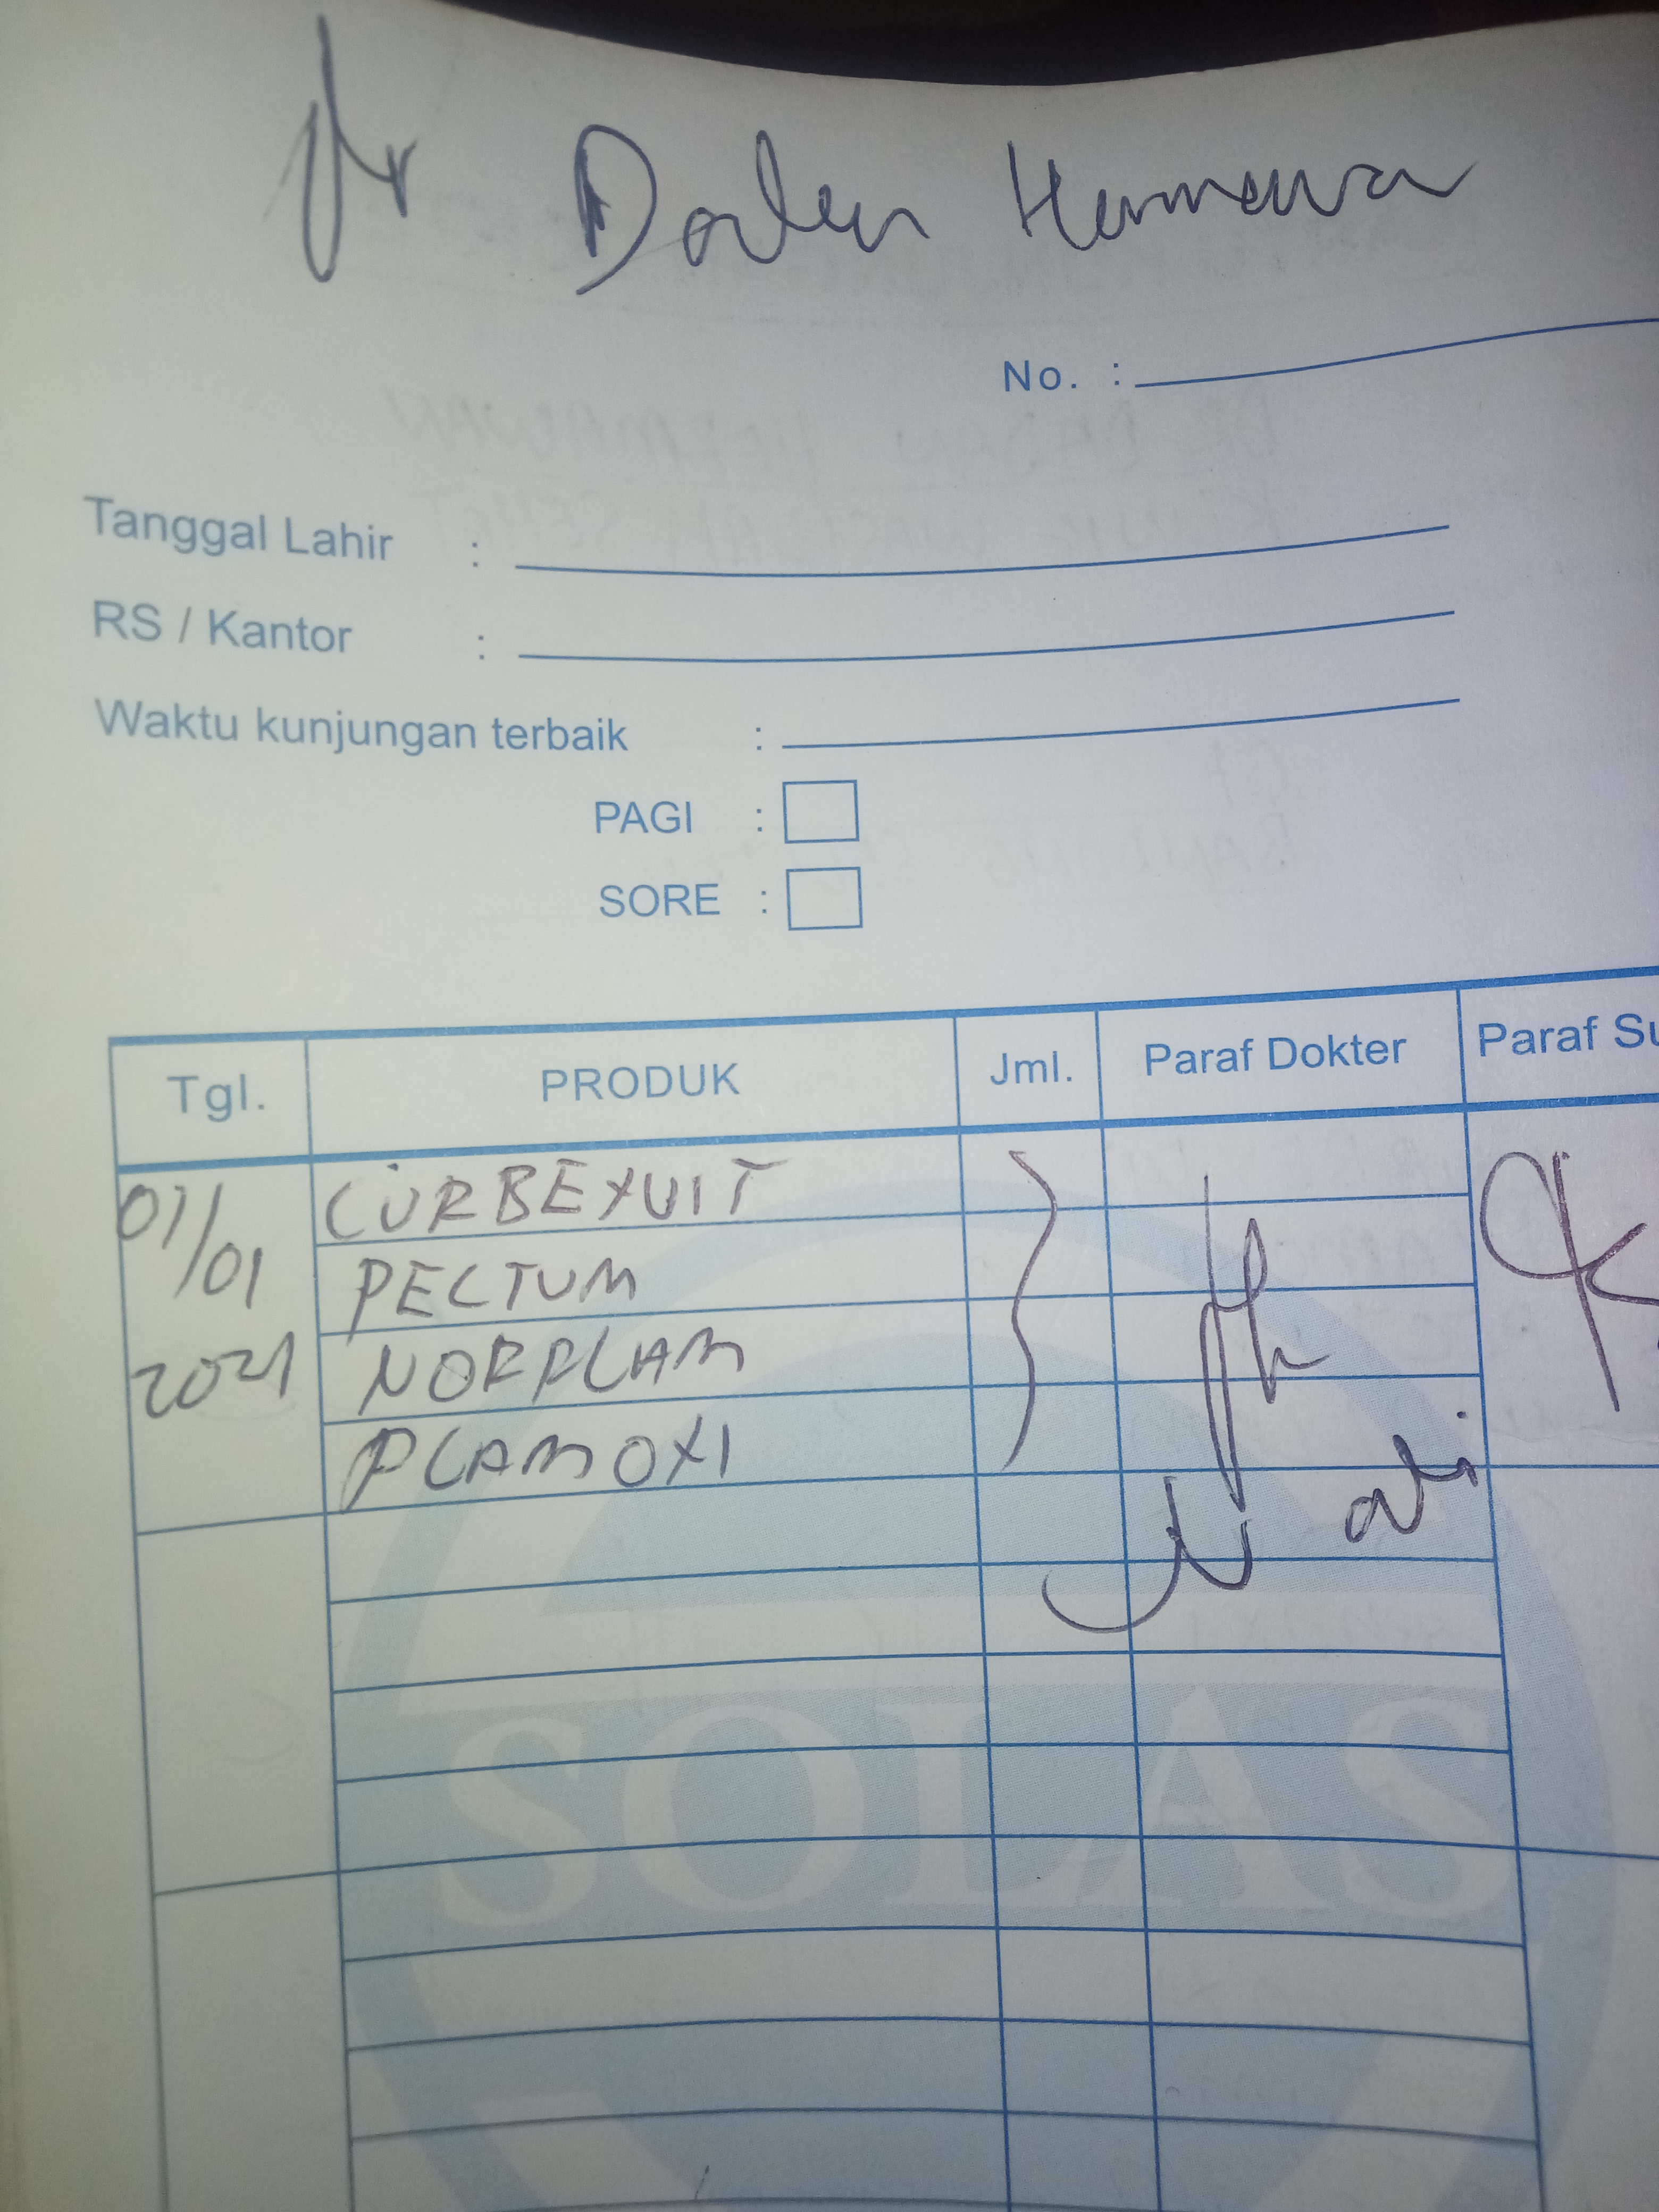 dr Dadan Hermawan
No. :
Tanggal Lahir :
RS / Kantor :
Waktu kunjungan terbaik :
PAGI :
SORE :
Tgl. PRODUK Jml. Paraf Dokter Paraf Su
07/01 CURBEXVIT
PECTUM
2021 NORPLAM
PLAMOXI
SOLAS